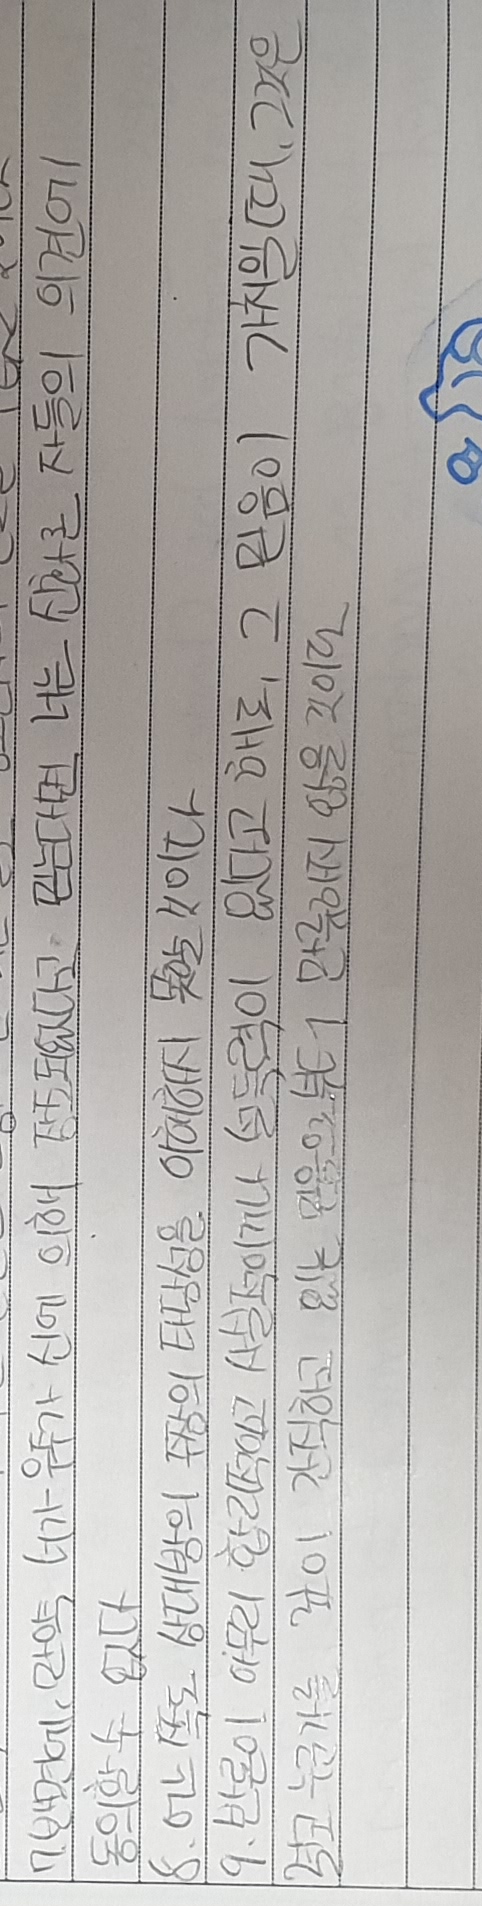 7.반면에, 만약 너가 우주가 신에 의해 창조되었다고 믿는다면 너는 진화론 자들의 의견에
동의할 수 없다
8. 어느 쪽도 상대방의 주장의 타당성을 이해하지 못할 것이다
9. 반론이 아무리 합리적이고 사실적이거나 설득력이 있다고 해도, 그 믿음이 가치일 때, 그것은
결코 누군가를 깊이 간직하고 있는 믿음으로부터 만류하지 않을 것이다